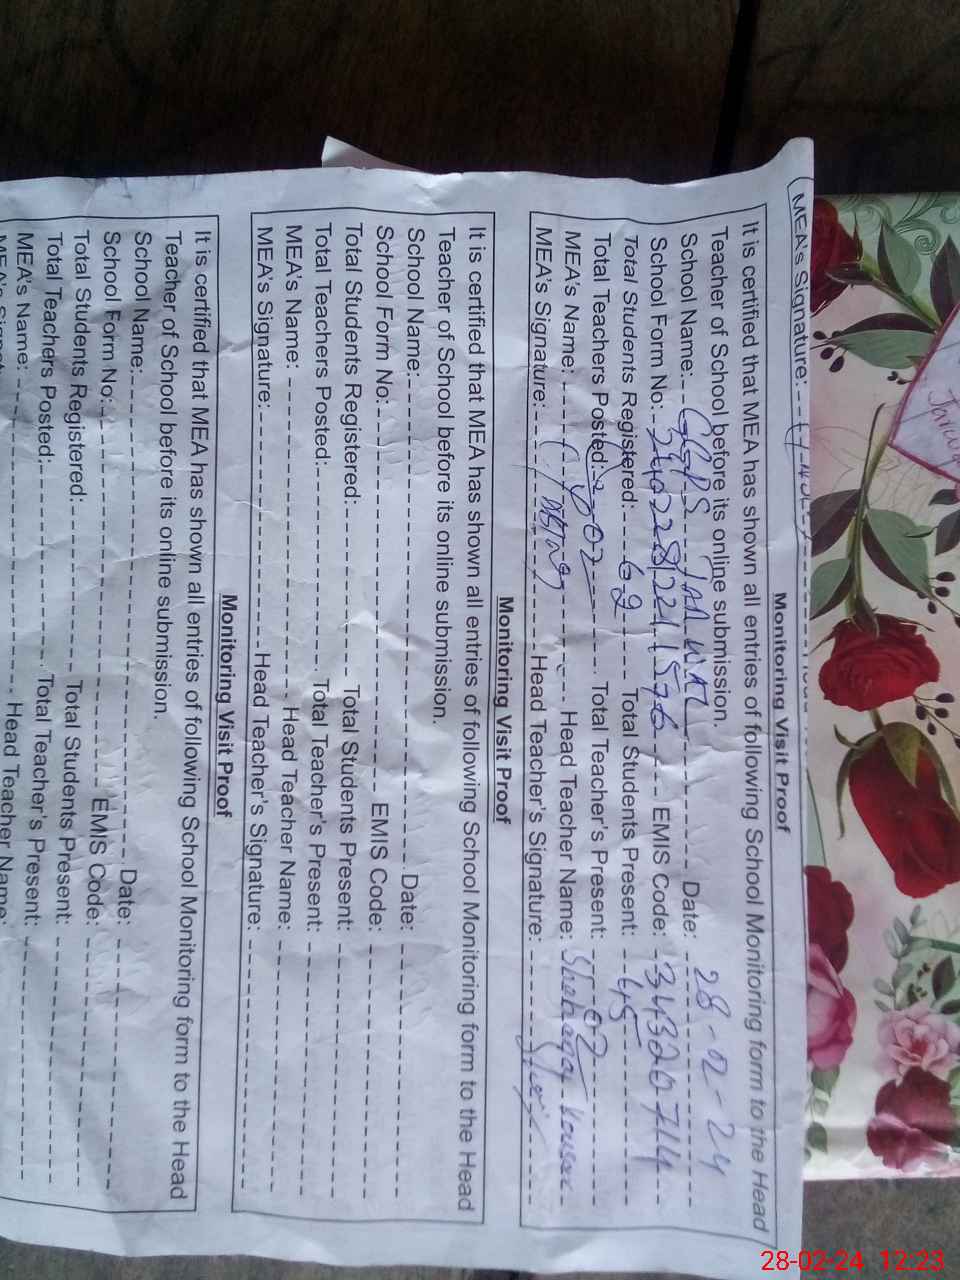 MEA's Signature:
Monitoring Visit Proof
It is certified that MEA has shown all entries of following School Monitoring form to the Head
Teacher of School before its online submission.
School Name: GGPS Date: 28-02-24
School Form No: EMIS Code:
Total Students Registered: 62 Total Students Present: 45
Total Teachers Posted: 02 Total Teacher's Present: 02
MEA's Name: Head Teacher Name:
MEA's Signature: Head Teacher's Signature:
Monitoring Visit Proof
It is certified that MEA has shown all entries of following School Monitoring form to the Head
Teacher of School before its online submission.
School Name: Date:
School Form No: EMIS Code:
Total Students Registered: Total Students Present:
Total Teachers Posted: Total Teacher's Present:
MEA's Name: Head Teacher Name:
MEA's Signature: Head Teacher's Signature:
Monitoring Visit Proof
It is certified that MEA has shown all entries of following School Monitoring form to the Head
Teacher of School before its online submission.
School Name: Date:
School Form No: EMIS Code:
Total Students Registered: Total Students Present:
Total Teachers Posted: Total Teacher's Present:
MEA's Name: Head Teacher Name:
28-02-24 12:23